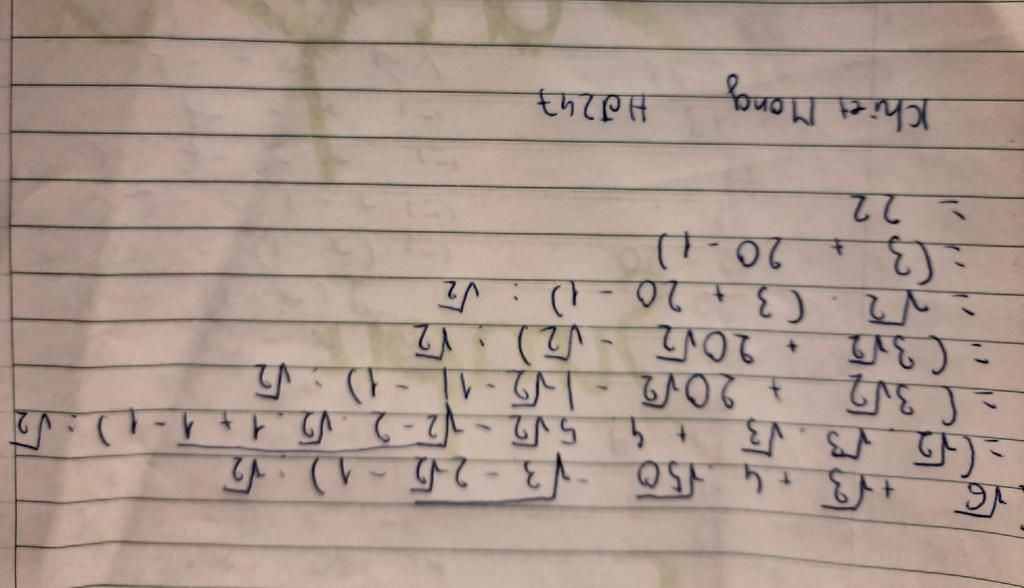 √6 + √3 + 4 √50 - √(3 - 2√2) - 1) : √2
= (√2 . √3 . √3 + 4 . 5√2 - √(2 - 2 . √2 . 1 + 1) - 1) : √2
= (3√2 + 20√2 - |√2 - 1| - 1) : √2
= (3√2 + 20√2 - √2) : √2
= √2 . (3 + 20 - 1) : √2
= (3 + 20 - 1)
= 22
Khiet Mong HJ247